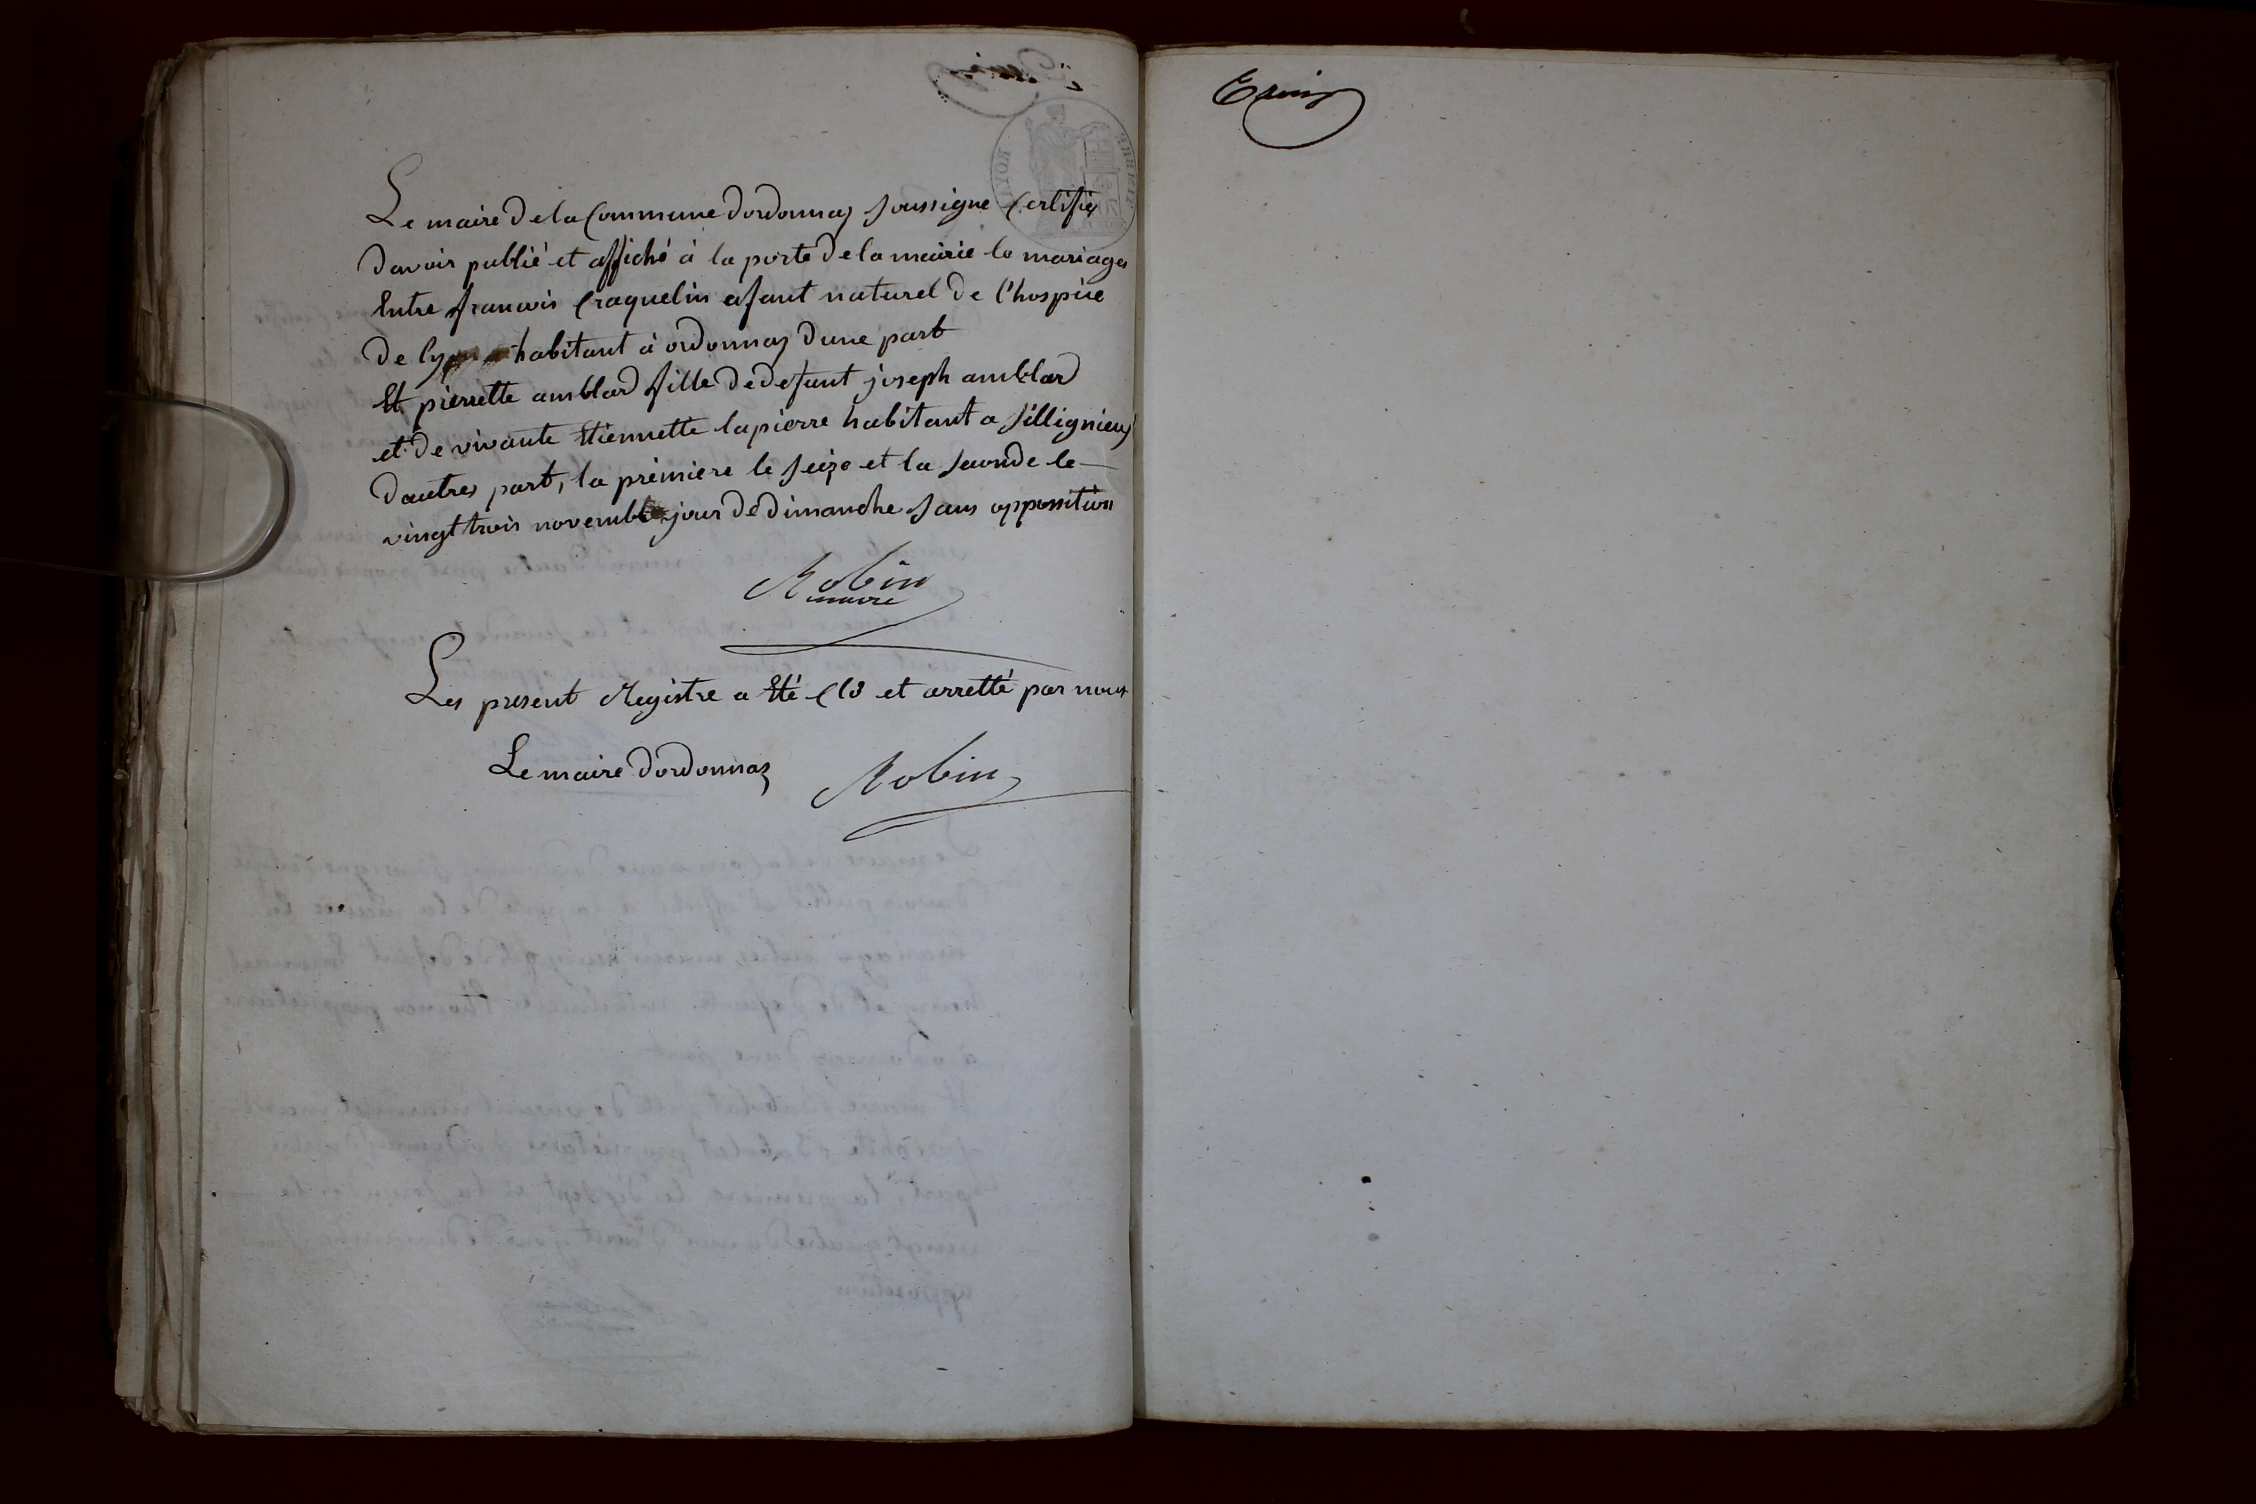 Le maire de la Commune dordonnaz soussigne Certifie
davoir publié et affiché à la porte de la mairie le mariage
Entre francois Craquelin efant naturel de l'hospice
de habitant à ordonnaz dune part
Et pierrette amblard fille de defunt joseph amblard
et de vivante Etiennette lapierre habitant a Sillignieuz
dautres part, la premiere le seize et la seconde le
vingt trois novembre jour de dimanche sans oppossition
Robin
maire
Les present Registre a Eté Clô et arretté par nous
Le maire d'ordonnaz Robin